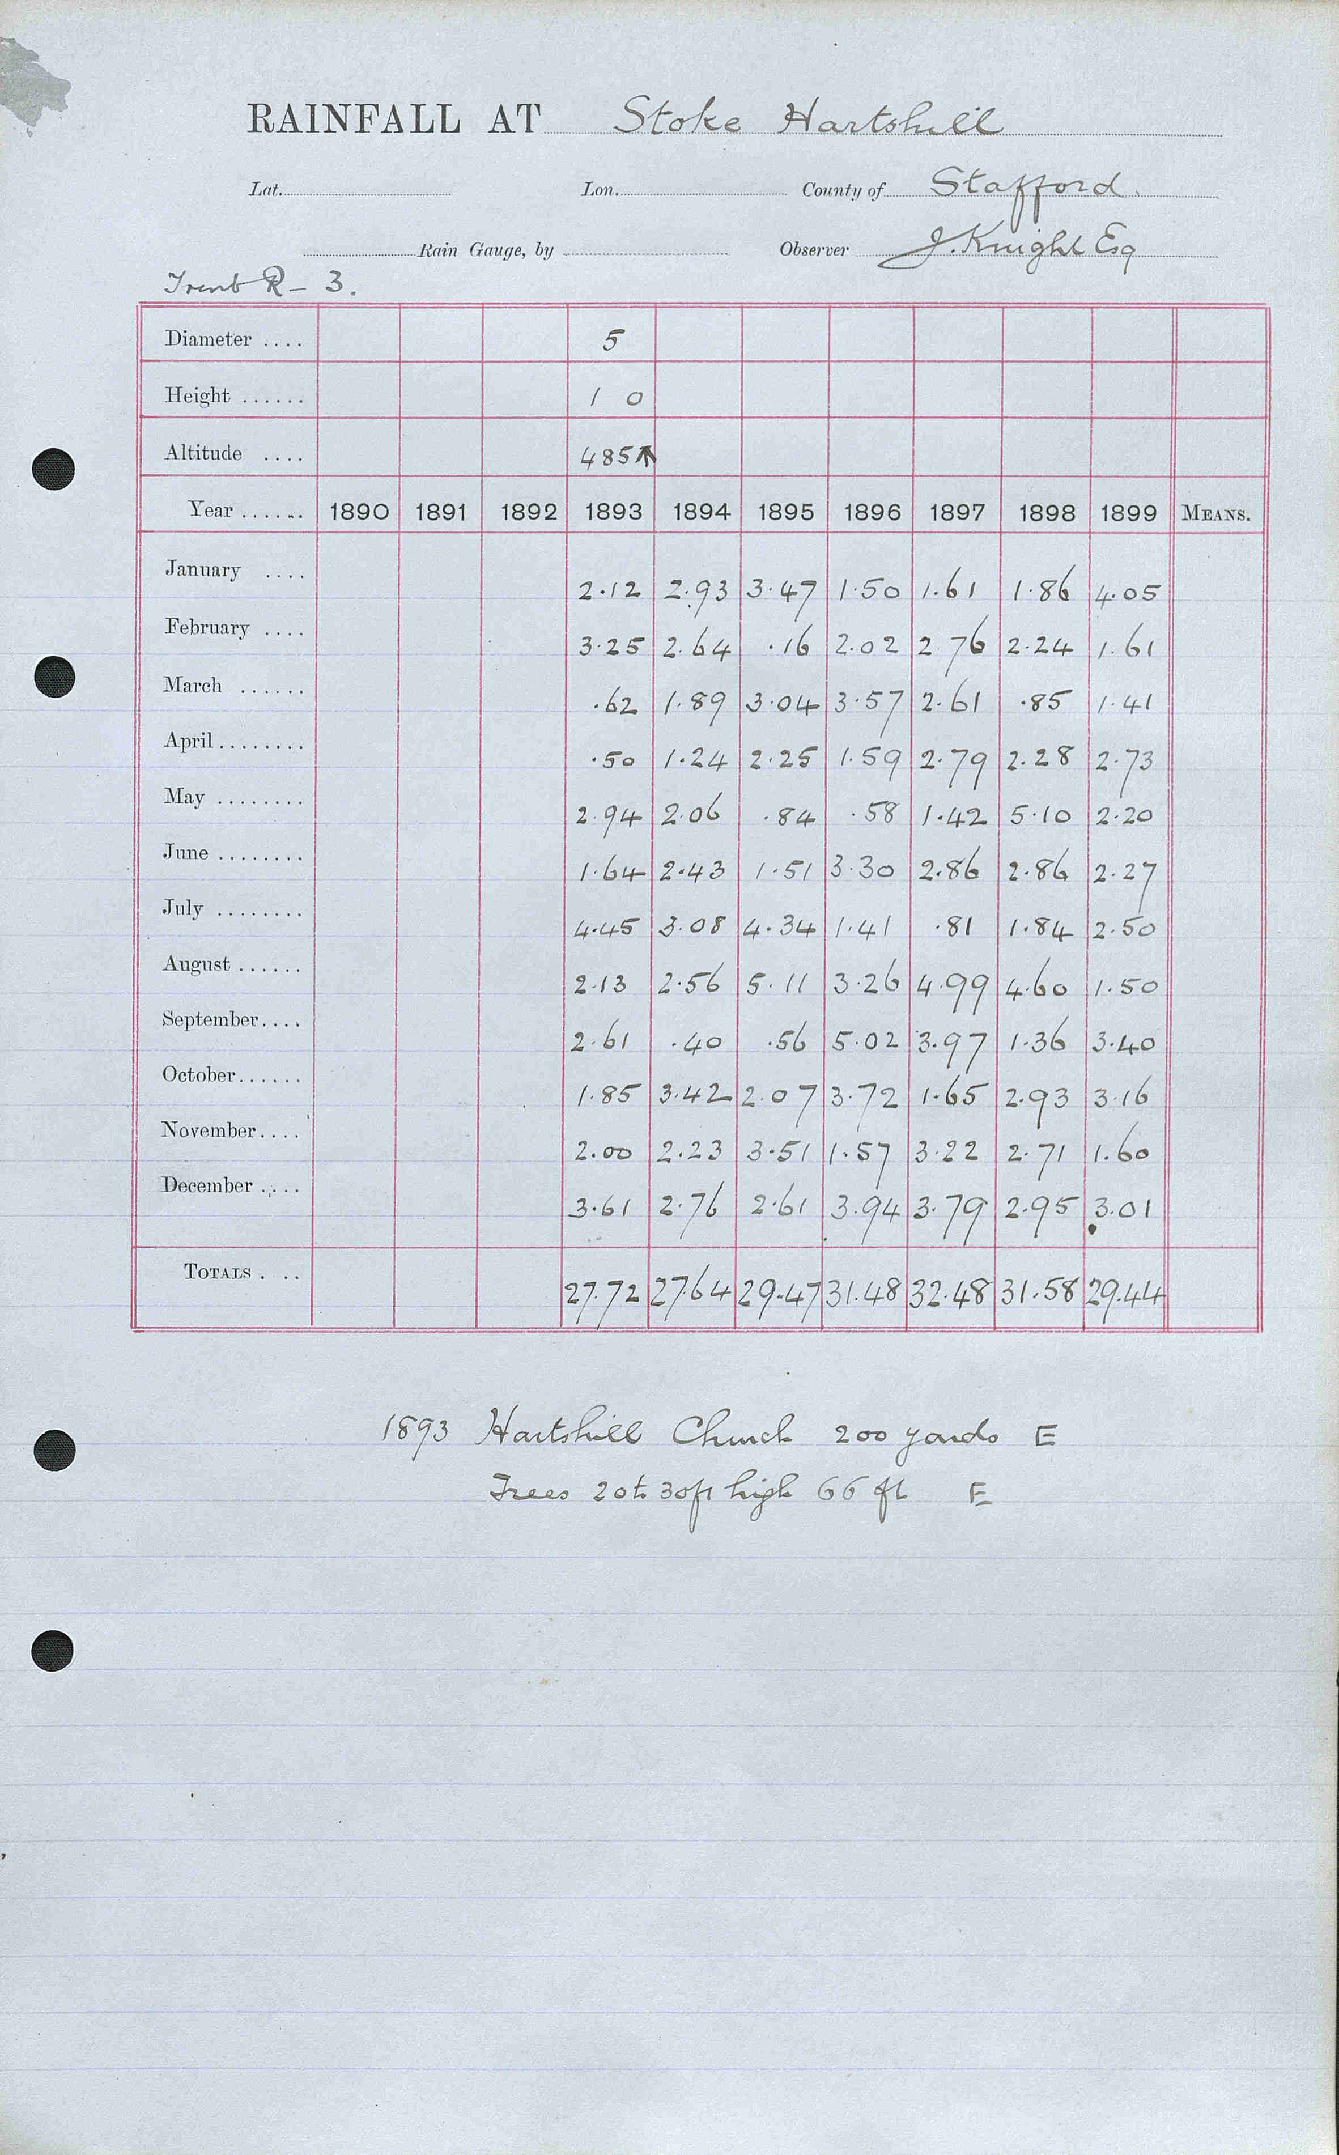 RAINFALL AT Stoke Hartshill
Lat. Lon. County of Stafford.
Rain Gauge, by Observer J. Knight Esq
Trent R - 3.
Diameter .... 5
Height ...... 1 0
Altitude .... 485
Year ...... 1890 1891 1892 1893 1894 1895 1896 1897 1898 1899 MEANS.
January .... 2.12 2.93 3.47 1.50 1.61 1.86 4.05
February .... 3.25 2.64 .16 2.02 2 76 2.24 1.61
March ...... .62 1.89 3.04 3.57 2.61 .85 1.41
April ........ .50 1.24 2.25 1.59 2.79 2.28 2.73
May ........ 2.94 2.06 .84 .58 1.42 5.10 2.20
June ........ 1.64 2.43 1.51 3.30 2.86 2.86 2.27
July ........ 4.45 3.08 4.34 1.41 .81 1.84 2.50
August ...... 2.13 2.56 5.11 3.26 4.99 4.60 1.50
September.... 2.61 .40 .56 5.02 3.97 1.36 3.40
October...... 1.85 3.42 2.07 3.72 1.65 2.93 3.16
November.... 2.00 2.23 3.51 1.57 3.22 2.71 1.60
December .... 3.61 2.76 2.61 3.94 3.79 2.95 3.01
TOTALS . .. 27.72 27.64 29.47 31.48 32.48 31.58 29.44
1893 Hartshill Church 200 yards E
Trees 20 to 30ft high 66 ft E